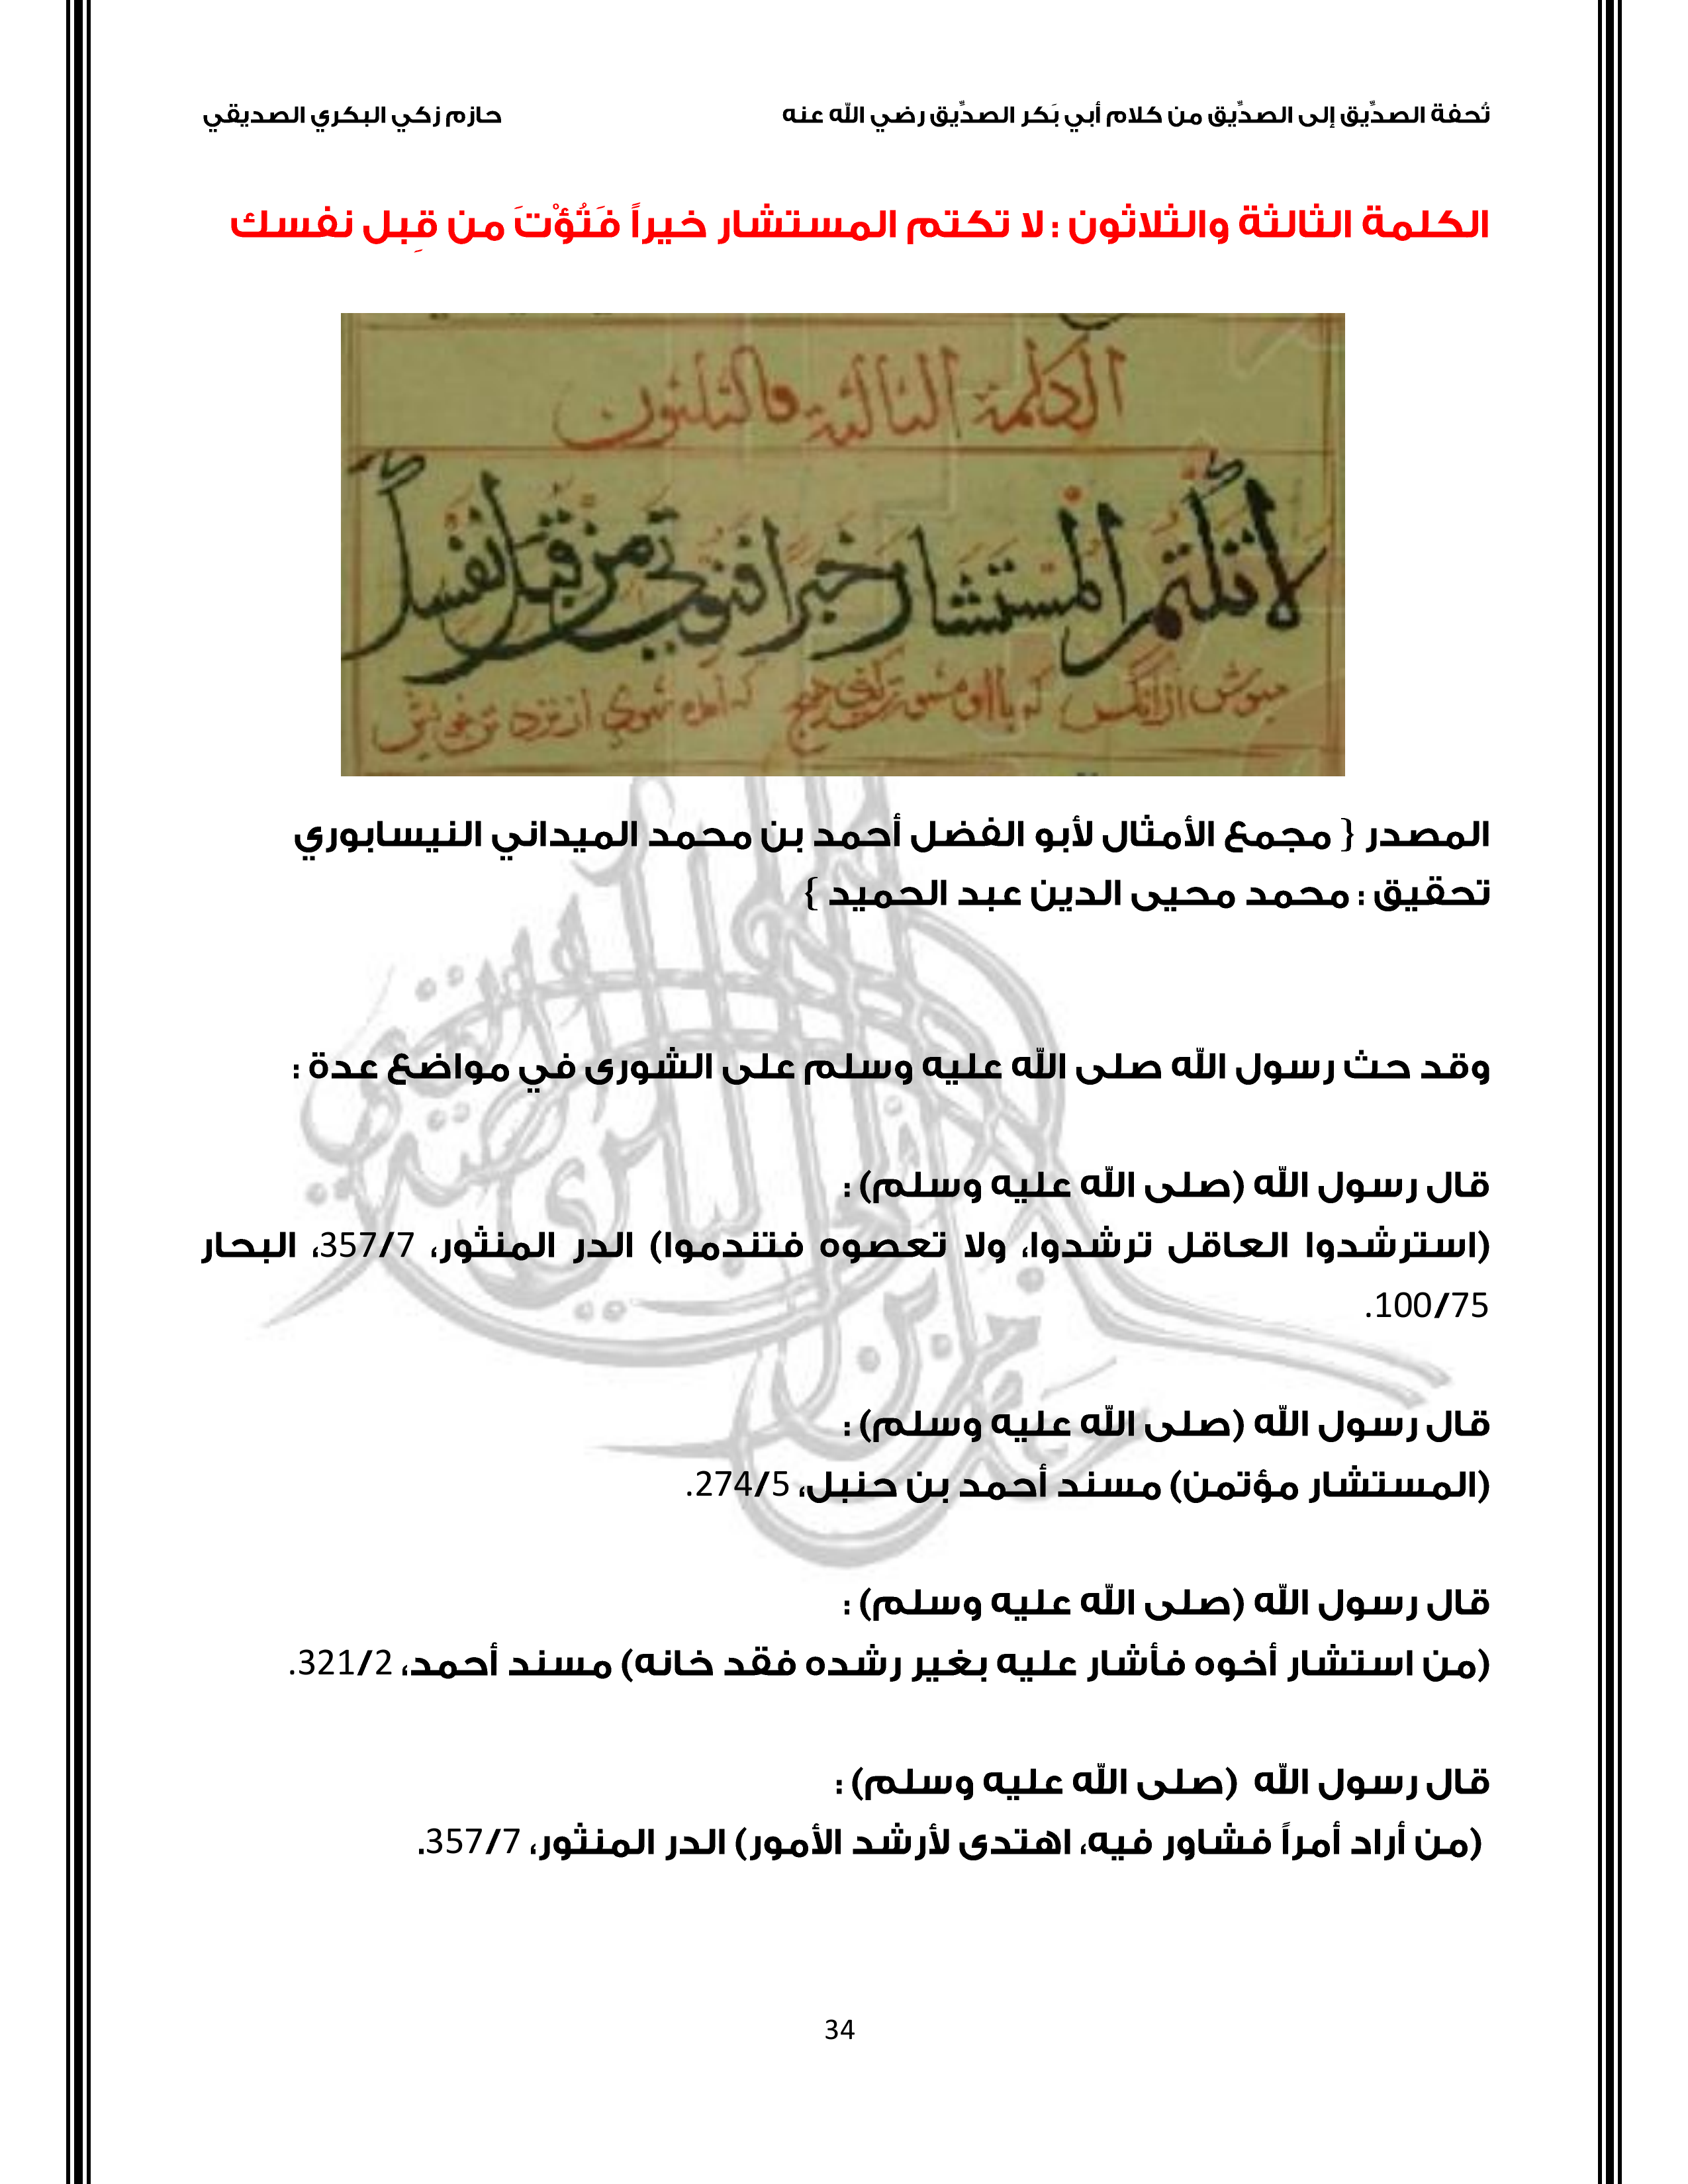 تُحفة الصدِّيق إلى الصدِّيق من كلام أبي بَكر الصدِّيق رضي الله عنه حازم زكي البكري الصديقي
الكلمة الثالثة والثلاثون : لا تكتم المستشار خيراً فَتُؤْتَ من قِبل نفسك
الكلمة الثالثة والثلثون
لا تكتم المستشار خبرا فتؤتى من قبل نفسك
المصدر { مجمع الأمثال لأبو الفضل أحمد بن محمد الميداني النيسابوري
تحقيق : محمد محيى الدين عبد الحميد }
وقد حث رسول الله صلى الله عليه وسلم على الشورى في مواضع عدة :
قال رسول الله (صلى الله عليه وسلم) :
(استرشدوا العاقل ترشدوا، ولا تعصوه فتندموا) الدر المنثور، 357/7، البحار
100/75.
قال رسول الله (صلى الله عليه وسلم) :
(المستشار مؤتمن) مسند أحمد بن حنبل، 274/5.
قال رسول الله (صلى الله عليه وسلم) :
(من استشار أخوه فأشار عليه بغير رشده فقد خانه) مسند أحمد، 321/2.
قال رسول الله (صلى الله عليه وسلم) :
(من أراد أمراً فشاور فيه، اهتدى لأرشد الأمور) الدر المنثور، 357/7.
34